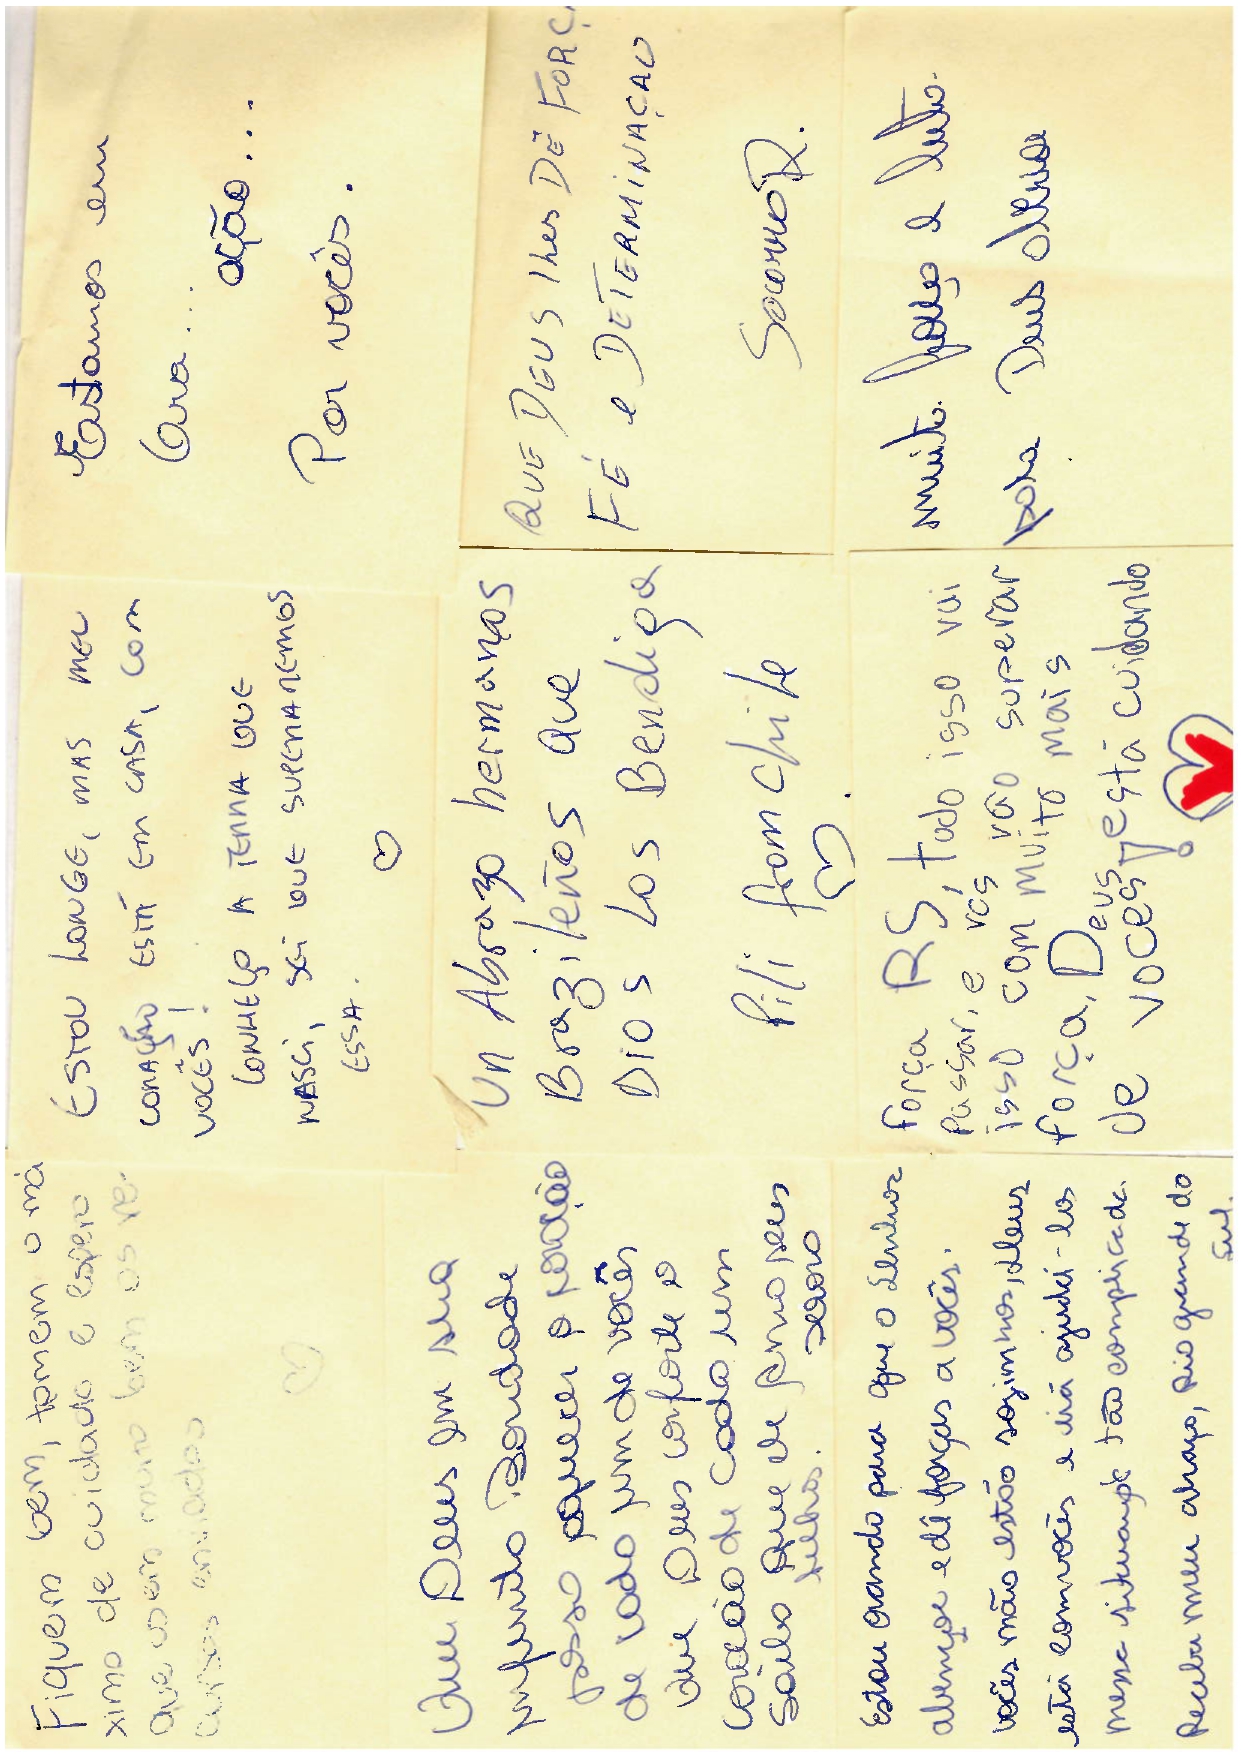 Fiquem bem, tomem o má
ximo de cuidado e espero
que usem muito bem os re-
cursos enviados
ESTOU LONGE, MAS MEU
CORAÇÃO ESTÁ EM CASA, COM
VOCÊS!
CONHEÇO A TERRA QUE
NASCI, SEI QUE SUPERAREMOS
ESSA.
Estamos em
ora...
ação...
Por vocês.
Que Deus em sua
infinita Bondade
possa aquecer o coração
de cada um de vocês
Que Deus conforte o
coração de cada um
Saiba que ele ama seus
filhos.
Un Abrazo hermanos
Brazileños que
Dios Los Bendiga
Pili from Chile
QUE DEUS lhes DÊ FORÇA
FÉ e DETERMINAÇÃO
Socorro R.
Estou orando para que o Senhor
abençoe e dê forças a vocês.
vocês não estão sozinhos, Deus
está com vocês e irá ajudá-los
nessa situação tão complicada.
Receba meu abraço, Rio grande do
Sul.
Força RS, tudo isso vai
Passar, e vcs vão superar
isso com muito mais
força, Deus está cuidando
de vocês!
muito força e
Deus